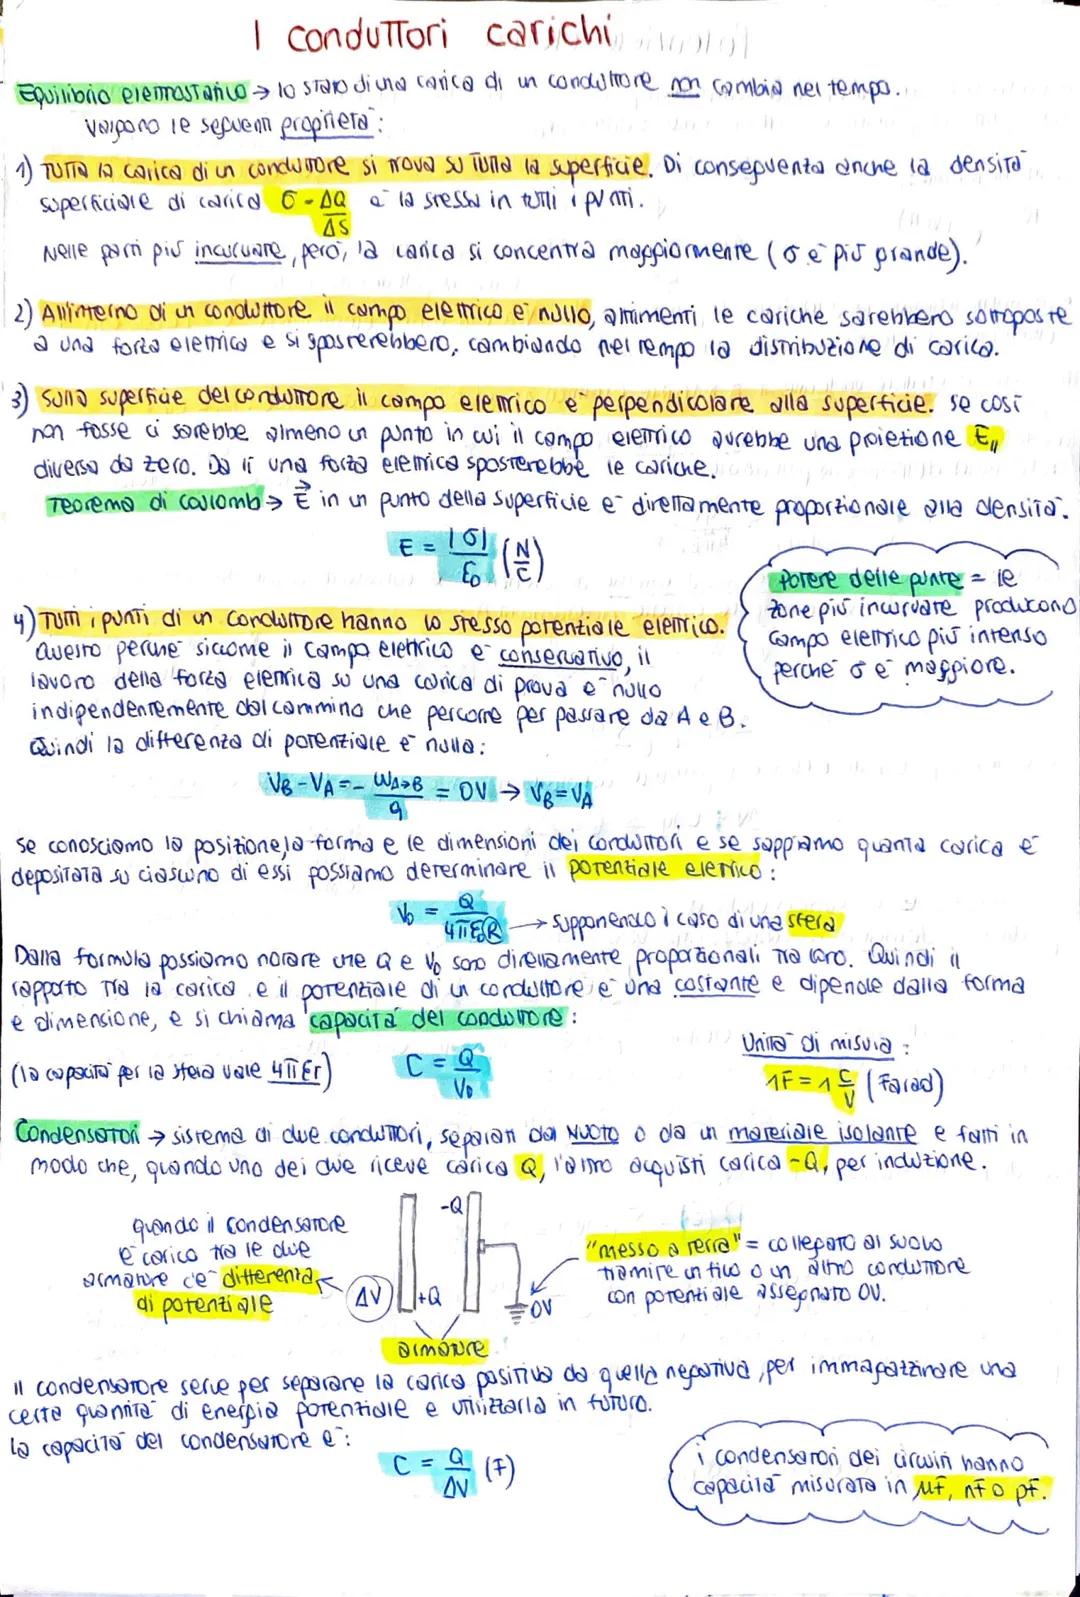 I conduttori carichi
Equilibrio elettrostatico → lo stato di una carica di un conduttore non cambia nel tempo.
Valgono le seguenti proprietà:
1) Tutta la carica di un conduttore si trova su tutta la superficie. Di conseguenza anche la densità
superficiale di carica σ = ΔQ/ΔS è la stessa in tutti i punti.
Nelle parti più incurvate, però, la carica si concentra maggiormente (σ è più grande).
2) All'interno di un conduttore il campo elettrico è nullo, altrimenti le cariche sarebbero sottoposte
a una forza elettrica e si sposterebbero, cambiando nel tempo la distribuzione di carica.
3) Sulla superficie del conduttore il campo elettrico è perpendicolare alla superficie. Se così
non fosse ci sarebbe almeno un punto in cui il campo elettrico avrebbe una proiezione E∥
diversa da zero. Da lì una forza elettrica sposterebbe le cariche.
Teorema di Coulomb → E⃗ in un punto della superficie è direttamente proporzionale alla densità.
E = |σ|/ε₀ (N/C)
Potere delle punte = le
zone più incurvate producono
campo elettrico più intenso
perché σ è maggiore.
4) Tutti i punti di un conduttore hanno lo stesso potenziale elettrico.
Questo perché siccome il campo elettrico è conservativo, il
lavoro della forza elettrica su una carica di prova è nullo
indipendentemente dal cammino che percorre per passare da A e B.
Quindi la differenza di potenziale è nulla:
VB - VA = - WA→B/q = 0V → VB = VA
Se conosciamo la posizione, la forma e le dimensioni dei conduttori e se sappiamo quanta carica è
depositata su ciascuno di essi possiamo determinare il potenziale elettrico:
V₀ = Q/4πε₀R → supponendo il caso di una sfera
Dalla formula possiamo notare che Q e V₀ sono direttamente proporzionali tra loro. Quindi il
rapporto tra la carica e il potenziale di un conduttore è una costante e dipende dalla forma
e dimensione, e si chiama capacità del conduttore:
(la capacità per la sfera vale 4πεr)
C = Q/V₀
Unità di misura:
1F = 1 C/V (Farad)
Condensatori → sistema di due conduttori, separati dal vuoto o da un materiale isolante e fatti in
modo che, quando uno dei due riceve carica Q, l'altro acquisti carica -Q, per induzione.
quando il condensatore
è carico tra le due
armature c'è differenza
di potenziale
ΔV
+Q
-Q
0V
armature
"messo a terra" = collegato al suolo
tramite un filo o un altro conduttore
con potenziale assegnato 0V.
Il condensatore serve per separare la carica positiva da quella negativa, per immagazzinare una
certa quantità di energia potenziale e utilizzarla in futuro.
La capacità del condensatore è:
C = Q/ΔV (F)
i condensatori dei circuiti hanno
capacità misurata in μF, nF o pF.